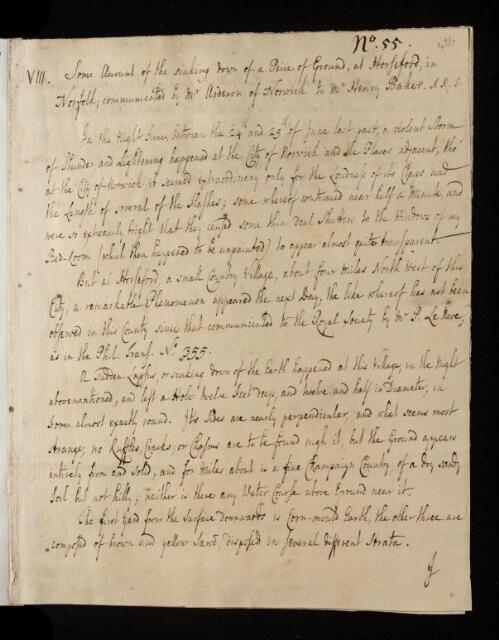 No. 55.
VIII. Some Account of the sinking down of a Peice of Ground, at Horseford, in
Norfolk; communicated by Mr Arderon of Norwich to Mr Henry Baker, F.R.S.
In the Night time, between the 24th and 25th of June last past, a violent Storm
of Thunder and Lightening happened at the City of Norwich and the Places adjacent, tho'
at the City of Norwich it seemed extraordinary only for the Loudness of its Claps, and
the Length of several of the Flashes; some whereof continued near half a Minute, and
were so extreamly bright that they caused some thin Deal Shutters to the Windows of my
Bed-Room (which then happened to be unpainted) to appear almost quite transparent.
But at Horseford, a small Country Village, about four Miles North West of this
City, a remarkable Phenomenon appeared the next Day, the like whereof has not been
observed in this County since that communicated to the Royal Society by Mr P. Le Neve,
as in the Phil. Trans. No. 355.
A Sudden Lapse, or sinking down of the Earth happened at this Village, in the Night
abovementioned, and left a Hole twelve Feet deep, and twelve and half in Diameter, in
Form almost exactly round. Its Sides are nearly perpendicular, and what seems most
strange, no Cracks, or Chasms are to be found nigh it, but the Ground appears
entirely firm and solid, and for Miles about is a fine Champaign Country, of a dry sandy
Soil but not hilly, neither is there any Water Course above Ground near it.
The first Yard from the Surface downwards is Corn-mould Earth, the other three are
composed of brown and yellow Sand, disposed in several different Strata.